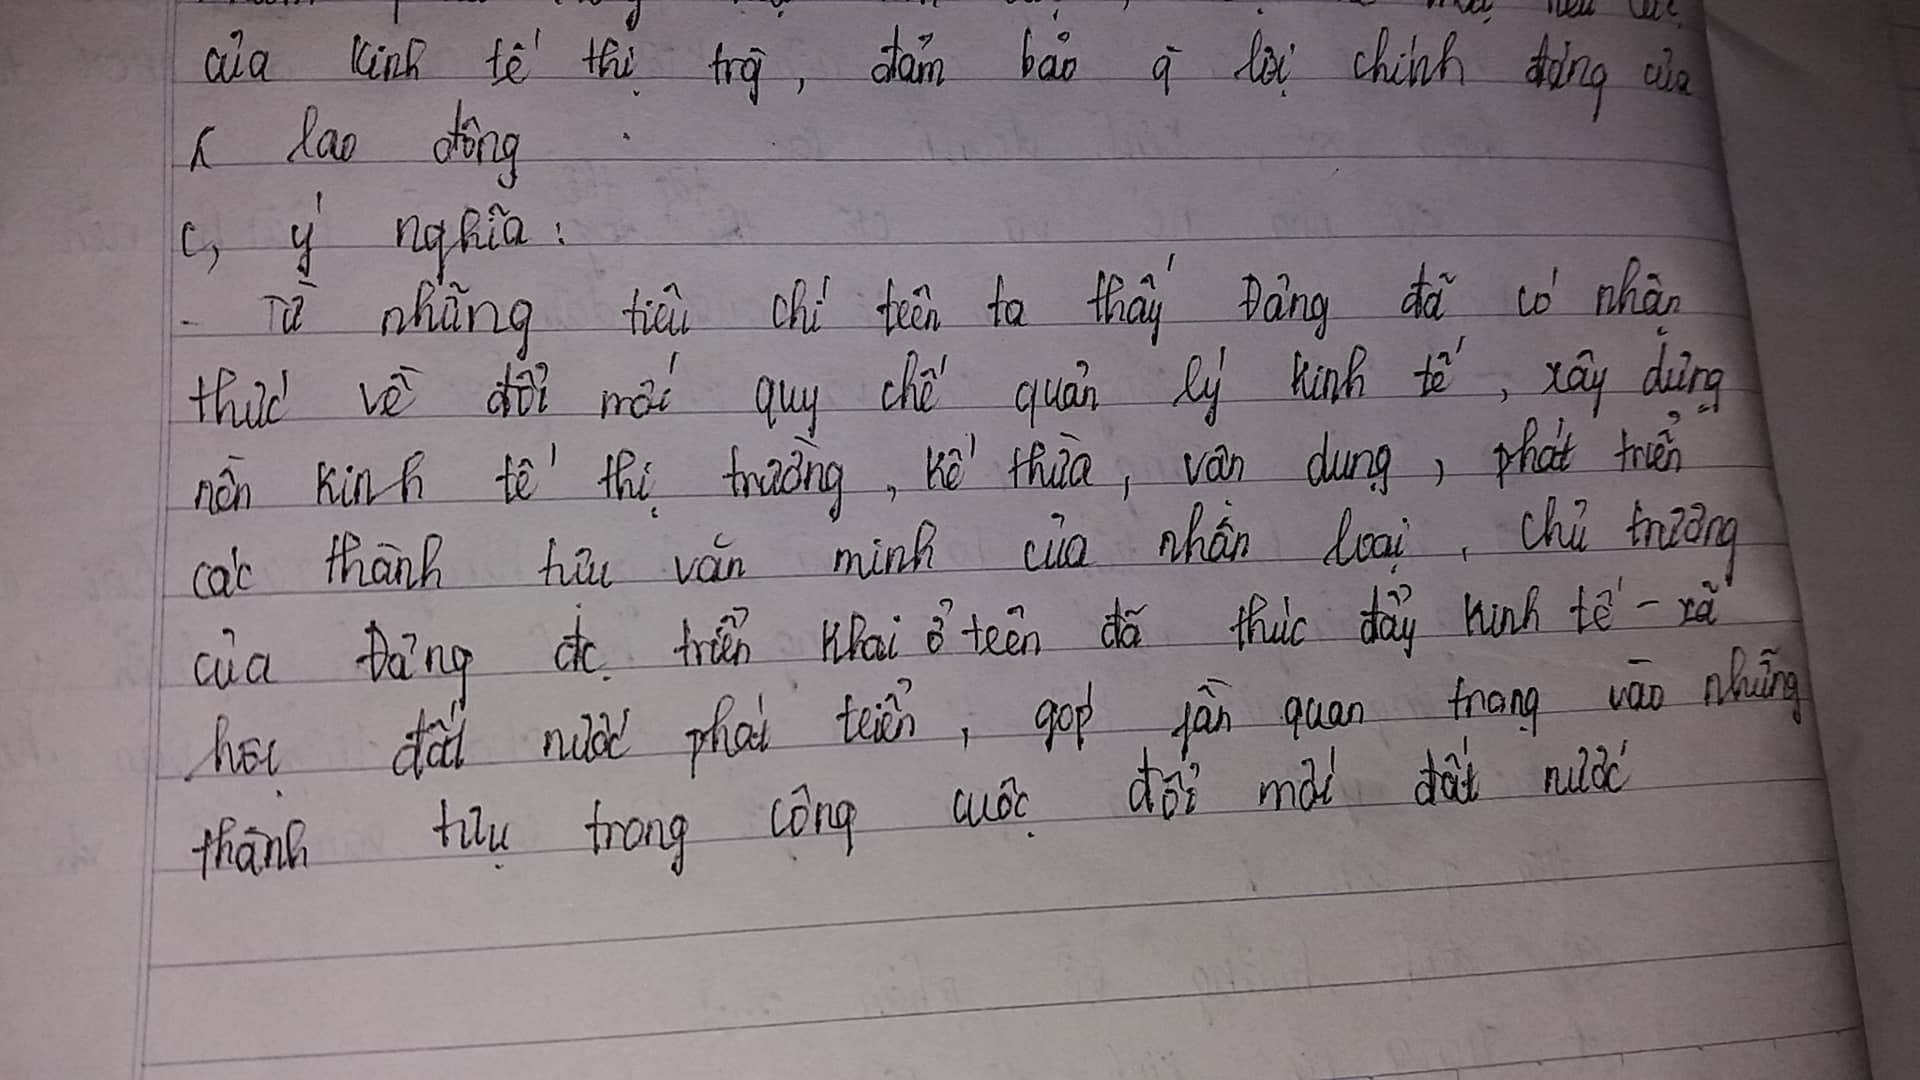 của kinh tế thị trg, đảm bảo q lợi chính đáng của
lao động
c, ý nghĩa:
- Từ những tiêu chí trên ta thấy Đảng đã có nhận
thức về đổi mới quy chế quản lý kinh tế, xây dựng
nền kinh tế thị trường, kế thừa, vận dụng, phát triển
các thành tựu văn minh của nhân loại, chủ trương
của Đảng đc triển khai ở trên đã thúc đẩy kinh tế - xã
hội đất nước phát triển, góp fần quan trọng vào những
thành tựu trong công cuộc đổi mới đất nước